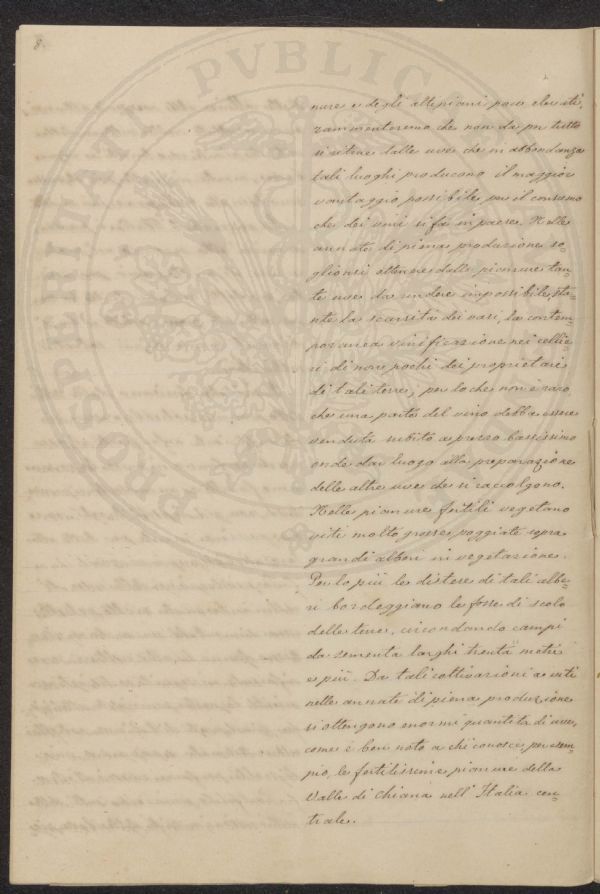 8.
nure e degli altipiani poco elevati,
rammenteremo che non da per tutto
si ritrae dalle uve che in abbondanza
tali luoghi producono il maggior
vantaggio possibile per il consumo
che dei vini si fa in paese. Nelle
annate di piena produzione so-
glionsi ottenere dalle pianure tan-
te uve da rendere impossibile, sta-
nte la scarsità dei vasi, la contem-
poranea vinificazione nei cellie-
ri di non pochi dei proprietari
di tali terre, per lo che non è raro
che una parte del vino debba essere
venduta subito a prezzo bassissimo
onde dar luogo alla preparazione
delle altre uve che si raccolgono.
Nelle pianure fertili vegetano
viti molto grosse poggiate sopra
grandi alberi in vegetazione.
Per lo più le distese di tali albe-
ri bordeggiano le fosse di scolo
delle terre, circondando campi
da sementa larghi trenta metri
e più. Da tali coltivazioni a viti
nelle annate di piena produzione
si ottengono enormi quantità di uve,
come è ben noto a chi conosce, per esem-
pio, le fertilissime pianure della
Valle di Chiana nell'Italia cen-
trale.
PROSPERITATI PVBLIC